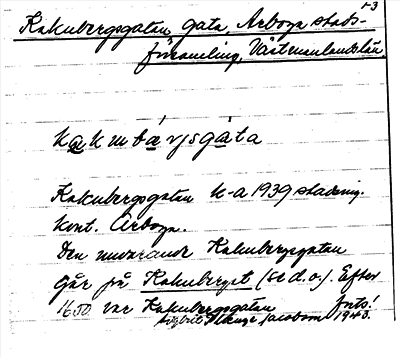 13
Kakubergsgatan, gata, Arboga stads-
församling, Västmanlands län.
Kakubergsgatan k-a 1939 stadsing.
kont. Arboga.
Den nuvarande Kakubergsgatan
går på Kakuberget (se d.o.). Efter
1650 var Kakubergsgatan forts!
Jacobson 1943.